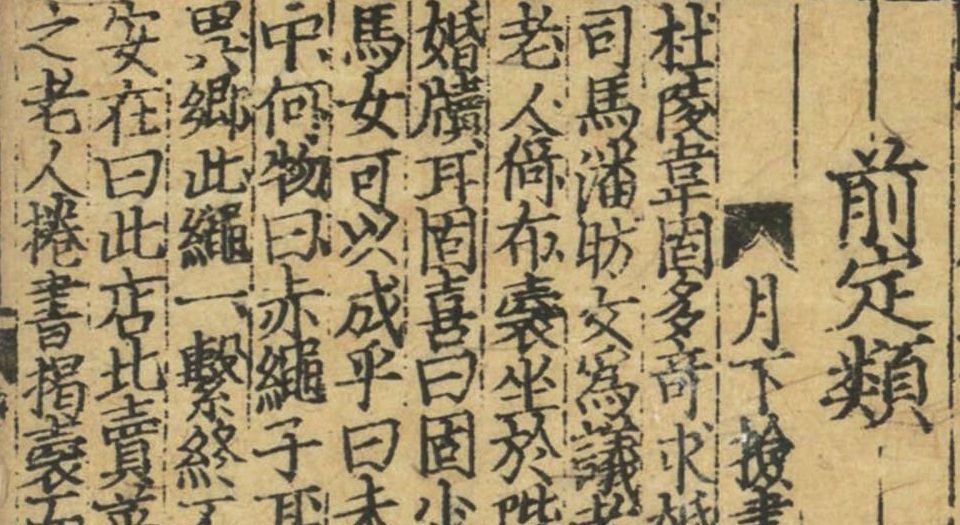 前定類
月下撿書
杜陵韋固多奇求婚
司馬潘昉文為議
老人倚布囊坐於
婚牘耳固喜曰固少
馬女可以成乎曰未
中何物曰赤繩子耳
異鄉此繩一繫終不
安在曰此店北賣
之老人捲書揭囊而